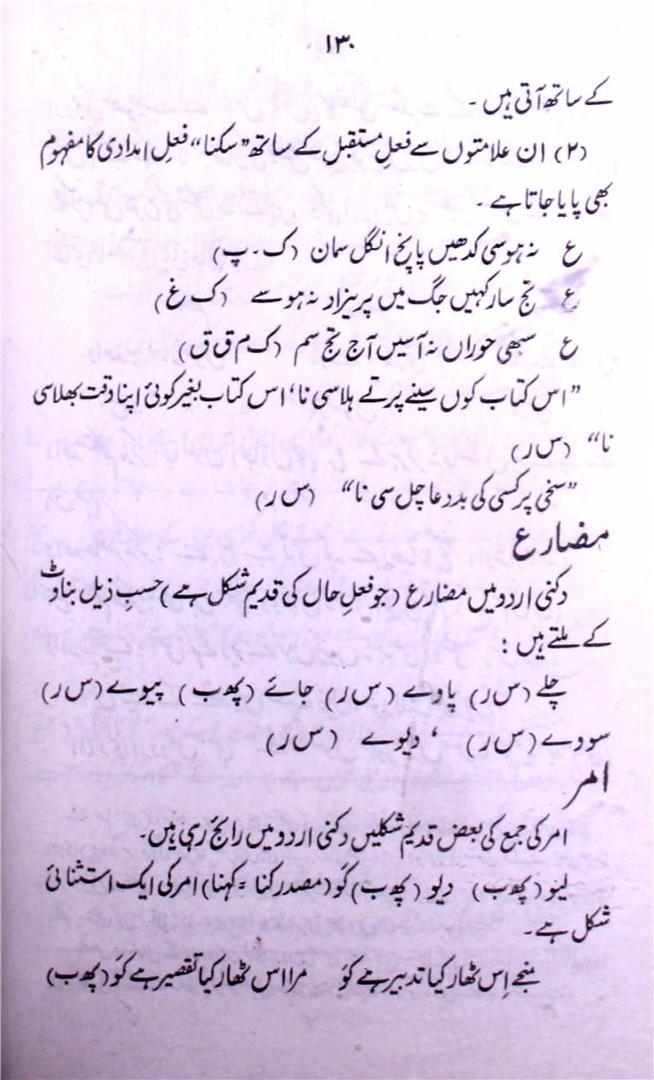 ۱۳۰
کے ساتھ آتی ہیں۔
(۲) ان علامتوں سے فعلِ مستقبل کے ساتھ "سکنا" فعلِ امدادی کا مفہوم
بھی پایا جاتا ہے۔
ع نہ ہوسی کدھیں پانچ انگل سمان (ک۔پ)
ع تج سار کہیں جگ میں پریزاد نہ ہوسے (ک غ)
ع سبھی حوراں نہ آسیں آج تج سم (ک م ق ق)
"اس کتاب کوں سینے پرتے ہلاسی نا، اس کتاب بغیر کوئی اپنا وقت بھلاسی
نا" (س ر)
"سخی پر کسی کی بددعا چل سی نا" (س ر)
مضارع
دکنی اردو میں مضارع (جو فعلِ حال کی قدیم شکل ہے) حسبِ ذیل بناوٹ
کے ملتے ہیں:
چلے (س ر) پاوے (س ر) جائے (پھ ب) پیوے (س ر)
سودے (س ر) ، دیوے (س ر)
امر
امر کی جمع کی بعض قدیم شکلیں دکنی اردو میں رائج رہی ہیں۔
لیو (پھ ب) دیو (پھ ب) کَو (مصدر کنا = کہنا) امر کی ایک استثنائی
شکل ہے۔
منجے اِس ٹھار کیا تدبیر ہے کَو مرا اس ٹھار کیا تقصیر ہے کَو (پھ ب)